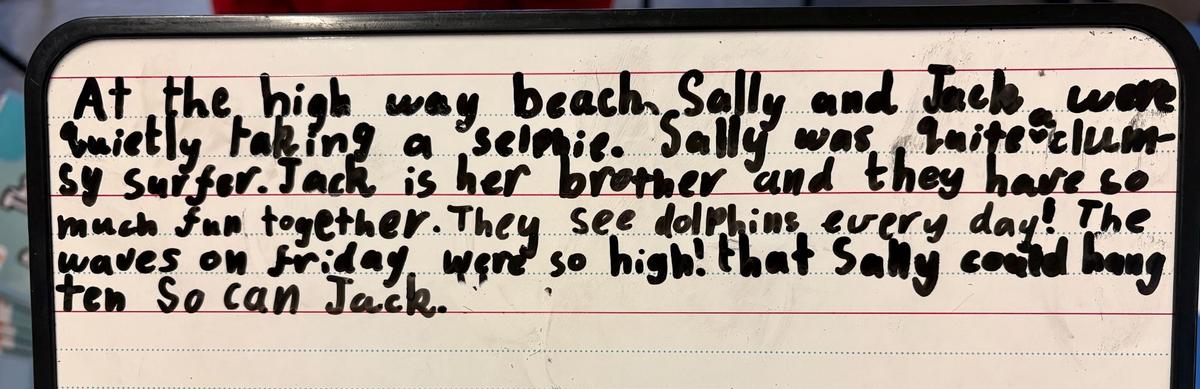 At the high way beach, Sally and Jack were
quietly taking a selphie. Sally was quite a clum-
sy surfer. Jack is her brother and they have so
much fun together. They see dolphins every day! The
waves on friday, were so high! that Sally could hang
ten So can Jack.